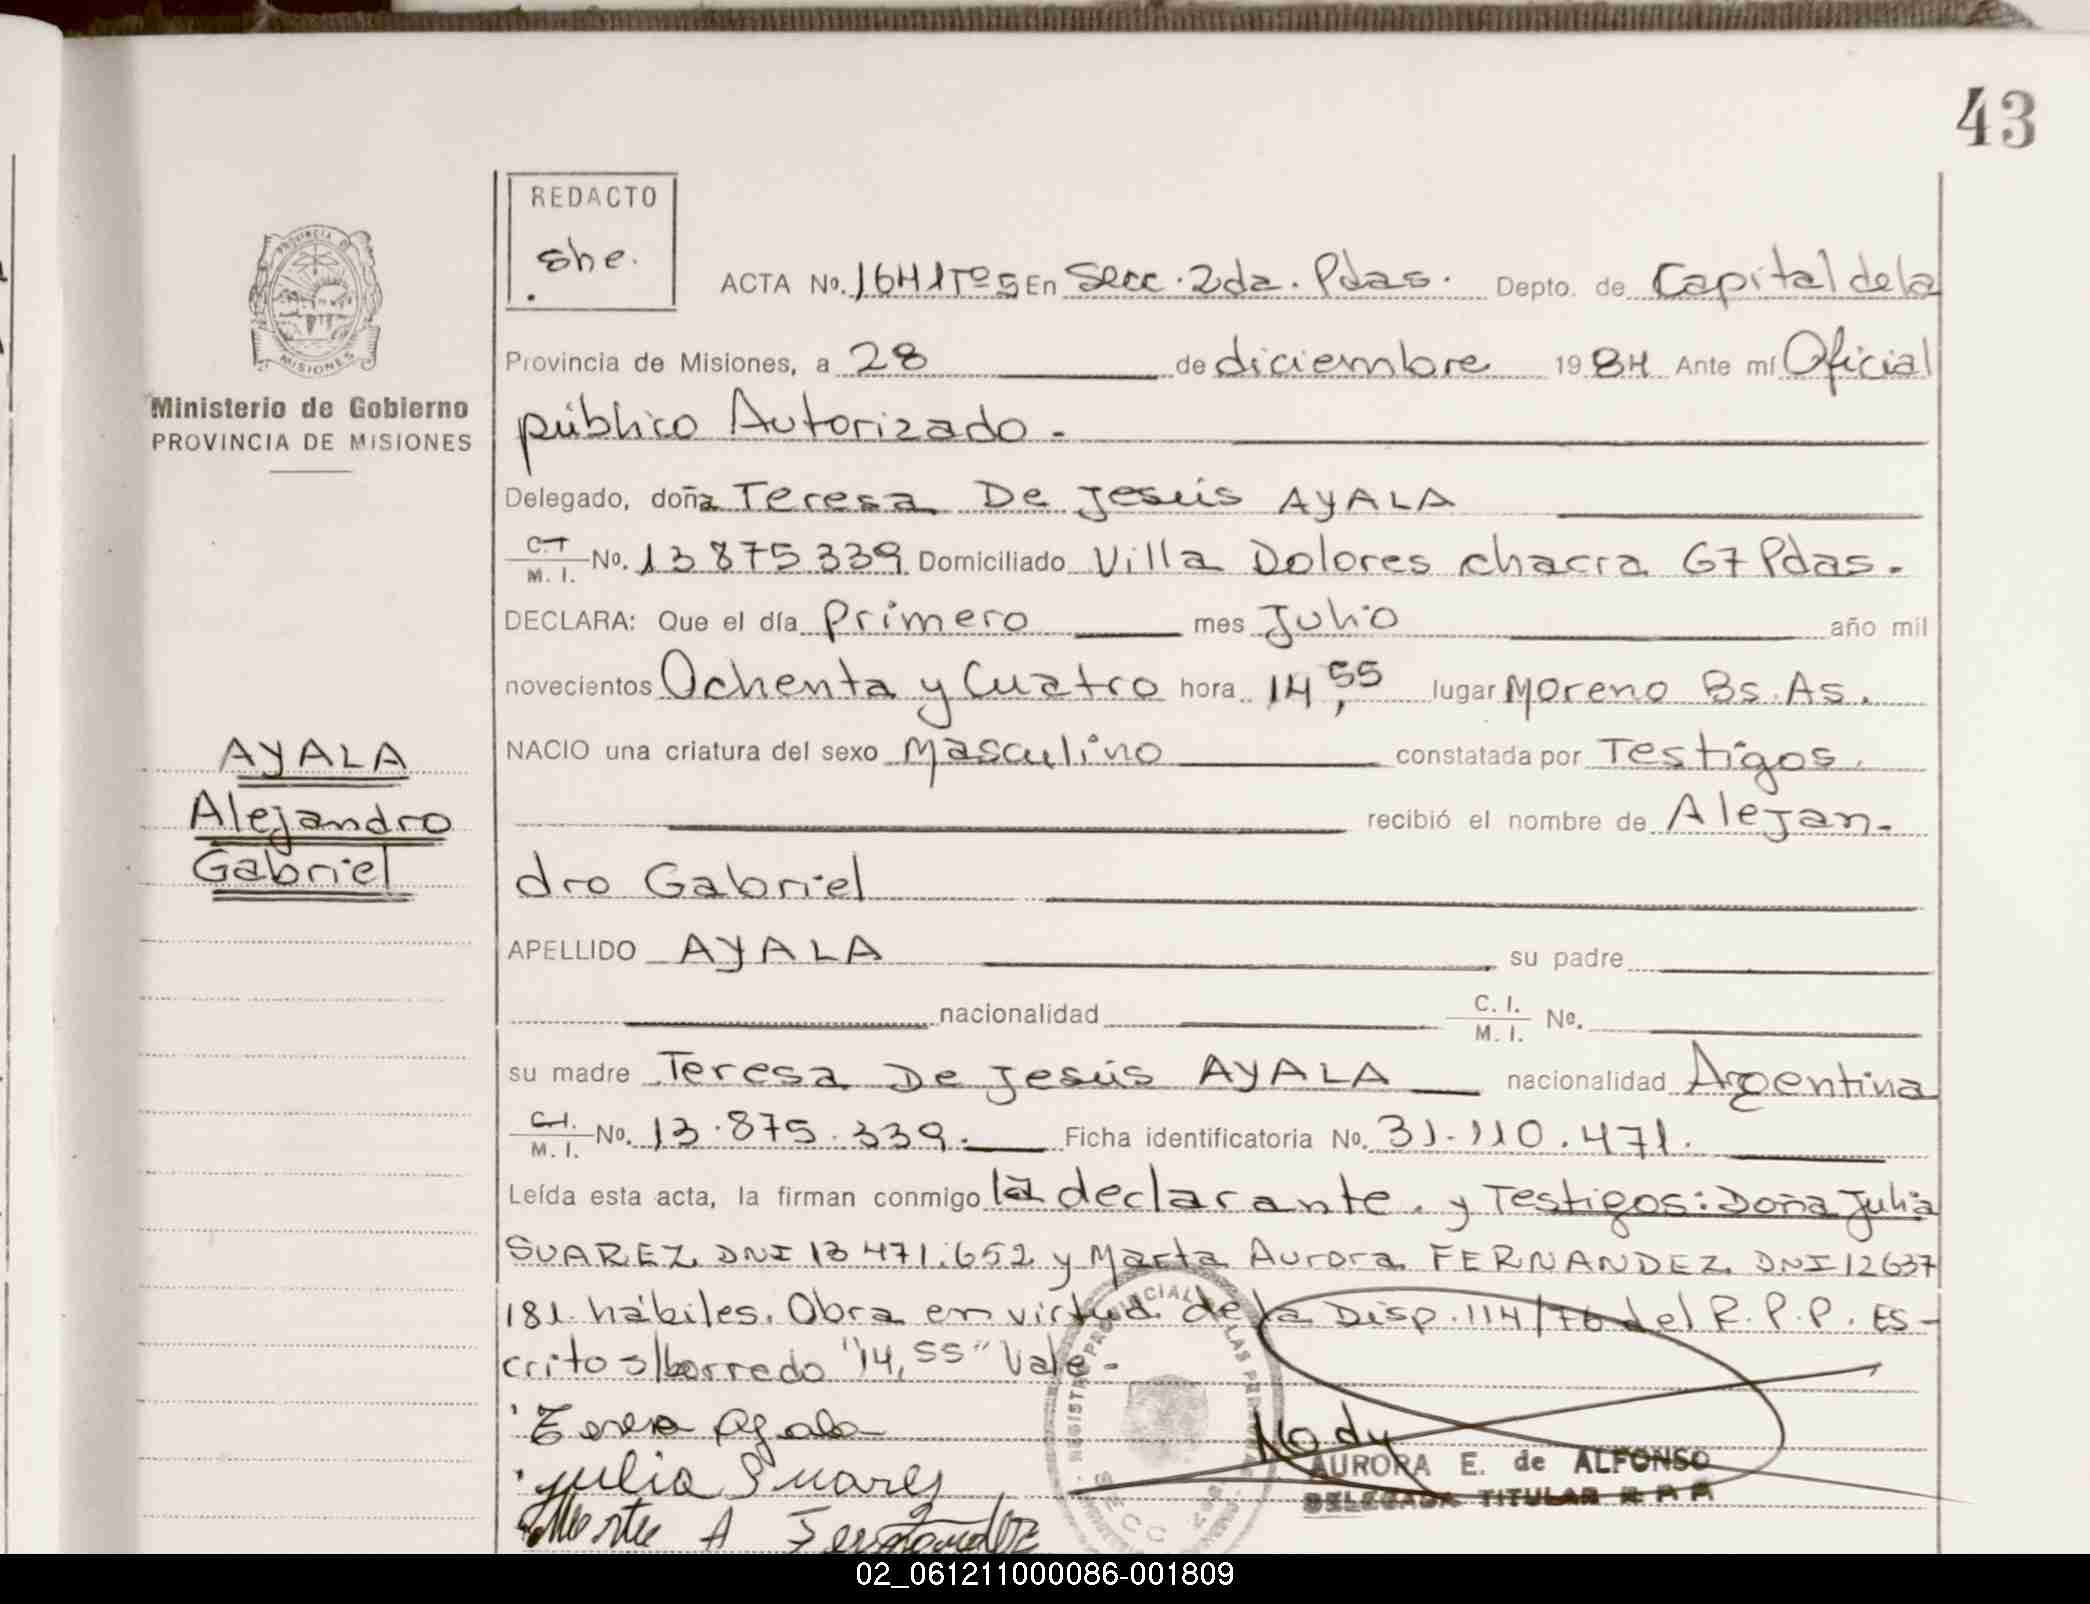 43
REDACTO
she.
ACTA No. 1641 Tº 5 En Secc. 2da. Pdas. Depto. de Capital de la
Provincia de Misiones, a 28 de diciembre 1984 Ante mí Oficial
público Autorizado.-
Delegado, doña Teresa De Jesús AYALA
C.I. M. I. No. 13875.339 Domiciliado Villa Dolores chacra 67 Pdas.
DECLARA: Que el día Primero mes Julio año mil
novecientos Ochenta y Cuatro hora 14,55 lugar Moreno Bs. As.
NACIO una criatura del sexo Masculino constatada por Testigos.
recibió el nombre de Alejan-
dro Gabriel
APELLIDO AYALA su padre
nacionalidad C. I. M. I. No.
su madre Teresa De Jesús AYALA nacionalidad Argentina
C.I. M. I. No. 13.875.339. Ficha identificatoria No. 31.110.471.
Leída esta acta, la firman conmigo la declarante. y Testigos: Doña Julia
SUAREZ DNI 13 471.652 y Marta Aurora FERNANDEZ DNI 12637
181 hábiles. Obra en virtud de la Disp. 114/76 del R.P.P. Es-
crito s/borredo "14,55" Vale-
Teresa Ayala
Julia Suares
Marta A Fernandez
AURORA E. de ALFONSO
DELEGADA TITULAR R P P
PROVINCIA DE
MISIONES
Ministerio de Gobierno
PROVINCIA DE MISIONES
AYALA
Alejandro
Gabriel
02_061211000086-001809